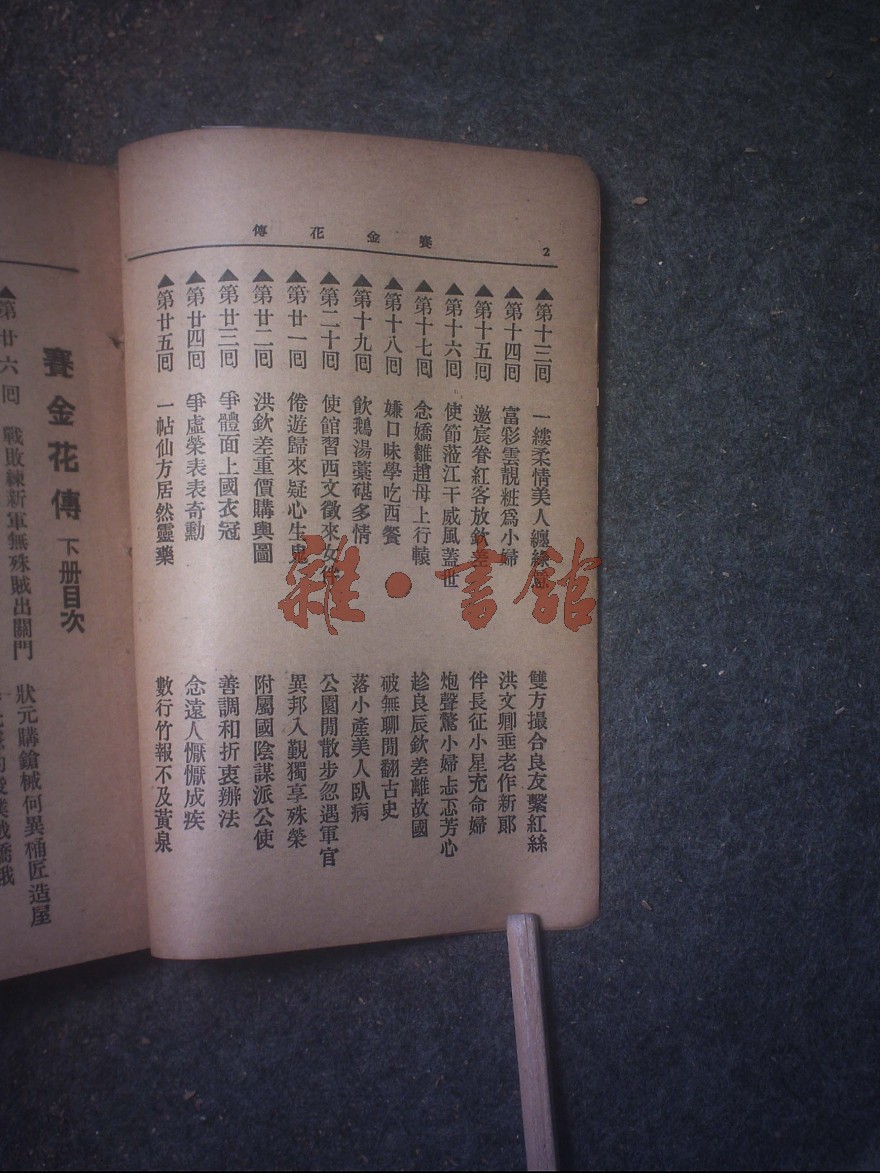 賽金花傳
2
▲第十三回 一縷柔情美人纏綠 雙方撮合良友繫紅絲
▲第十四回 富彩雲靚粧爲小婦 洪文卿垂老作新郞
▲第十五回 邀宸眷紅客放欽差 伴長征小星充命婦
▲第十六回 使節蒞江干威風蓋世 炮聲驚小婦忐忑芳心
▲第十七回 念嬌雛趙母上行轅 趁良辰欽差離故國
▲第十八回 嫌口味學吃西餐 破無聊閒翻古史
▲第十九回 飮鵝湯藁砧多情 落小產美人臥病
▲第二十回 使館習西文徵來女伴 公園閒散步忽遇軍官
▲第廿一回 倦遊歸來疑心生鬼 異邦入覲獨享殊榮
▲第廿二回 洪欽差重價購輿圖 附屬國陰謀派公使
▲第廿三回 爭體面上國衣冠 善調和折衷辦法
▲第廿四回 爭虛榮表表奇勳 念遠人懨懨成疾
▲第廿五回 一帖仙方居然靈藥 數行竹報不及黃泉
賽金花傳 下册目次
▲第廿六回 戰敗練新軍無殊賊出關門 狀元購鎗械何異桶匠造屋
雜·書館